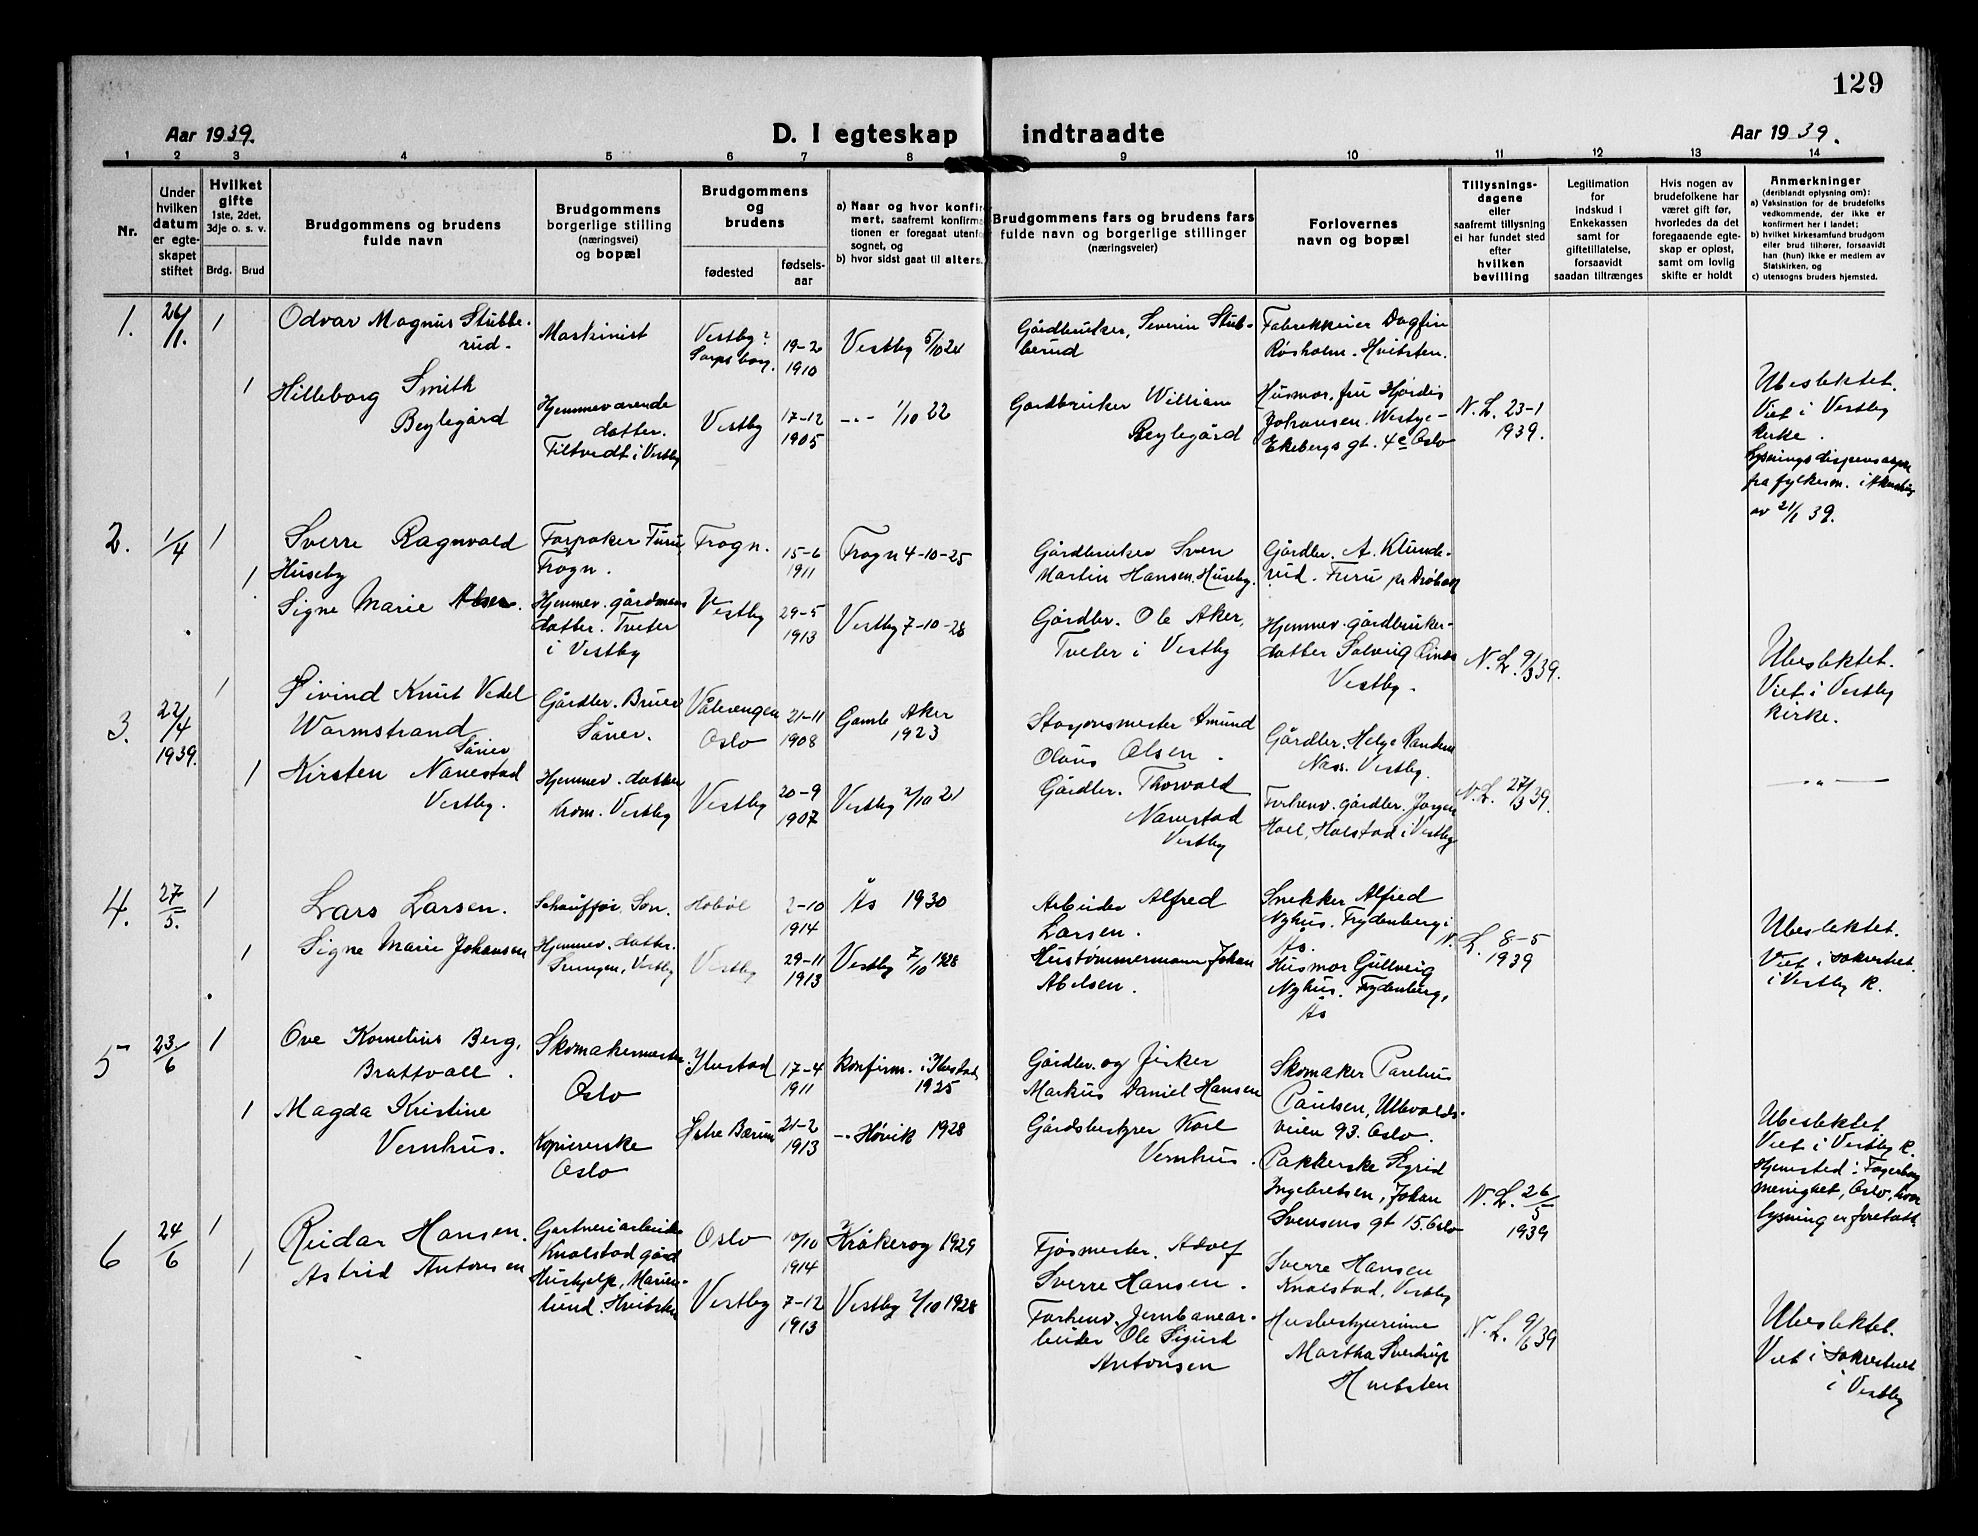 129
Aar 1939.
D. I egteskap indtraadte
Aar 1939.
1 2 3 4 5 6 7 8 9 10 11 12 13 14
Nr.
Under
hvilken
datum
er egte-
skapet
stiftet
Hvilket
gifte
1ste, 2det,
3dje o. s. v.
Brdg. Brud
Brudgommens og brudens
fulde navn
Brudgommens
borgerlige stilling
(næringsvei)
og bopæl
Brudgommens
og
brudens
fødested
fødsels-
aar
a) Naar og hvor konfir-
mert, saafremt konfirma-
tionen er foregaat utenfor
sognet, og
b) hvor sidst gaat til alters.
Brudgommens fars og brudens fars
fulde navn og borgerlige stillinger
(næringsveier)
Forlovernes
navn og bopæl
Tillysnings-
dagene
eller
saafremt tillysning
ei har fundet sted
efter
hvilken
bevilling
Legitimation
for
indskud i
Enkekassen
samt for
giftetillatelse,
forsaavidt
saadan tiltrænges
Hvis nogen av
brudefolkene har
været gift før,
hvorledes da det
foregaaende egte-
skap er opløst,
samt om lovlig
skifte er holdt
Anmerkninger
(deriblandt oplysning om):
a) Vaksination for de brudefolks
vedkommende, der ikke er
konfirmert her i landet;
b) hvilket kirkesamfund brudgom
eller brud tilhører, forsaavidt
han (hun) ikke er medlem av
Statskirken, og
c) utensogns bruders hjemsted.
1. 26/1. 1
Odvar Magnus Stubbe-
rud.
Maskinist
Vestby?
Sarpsborg.
19-2
1910
Vestby 5/10 24
Gårdbruker, Severin Stub-
berud
Fabrikkeier Dagfin
Røsholm. Hvitsten.
1
Hilleborg Smith
Beylegård
Hjemmeværende
datter.
Filtvedt i Vestby
Vestby
17-12
1905
-"- 1/10 22
Gårdbruker William
Beylegård
Husmor, fru Hjørdis
Johansen. Westye-
Ekebergs gt. 4c Oslo
N. L. 23-1
1939.
Ubeslektet.
Viet i Vestby
kirke.
Lysningsdispensasjon
fra fylkesm. i Akershus
av 21/1 39.
2. 1/4 1
Sverre Ragnvald
Huseby
Forpakter Furu
Frogn.
Frogn.
15-6
1911
Frogn 4-10-25
Gårdbruker Sven
Martin Hansen Huseby.
Gårdbr. A. Klunde-
rud. Furu pr Drøbak
1
Signe Marie Aker.
Hjemmev. gårdmans
datter. Tveter
i Vestby
Vestby
29-5
1913
Vestby 7-10-28
Gårdbr. Ole Aker,
Tveter i Vestby
Hjemmev. gårdbruker-
datter Solveig
Vestby.
N. L. 9/3 39.
Ubeslektet.
Viet i Vestby
kirke.
3. 22/4
1939.
1
Øivind Knut Vedel
Warmstrand
Såner
Gårdbr. Bruer
Såner.
Vålerengen
Oslo
21-11
1908
Gamle Aker
1923
Stasjonsmester Amund
Olaus Olsen.
Gårdbr. Helge Randem
Næss. Vestby.
1
Kirsten Navestad
Vestby.
Hjemmev. datter
Krom. Vestby
Vestby
20-9
1907
Vestby 2/10 21
Gårdbr. Thorvald
Navestad
Vestby
Forhenv. gårdbr. Jørgen
Hoel, Holstad i Vestby
N. L. 27/3 39.
—"—
4. 27/5. 1
Lars Larsen.
Schauffør, Son.
Hobøl
2-10
1914
Ås 1930
Arbeider Alfred
Larsen.
Snekker Alfred
Nyhus. Frydenberg i
Ås.
1
Signe Marie Johansen
Hjemmev. datter.
Vestby
Vestby
29-11
1913
Vestby 7/10 1928
Hustømmermann Johan
Abelsen.
Husmor Gullveig
Nyhus. Frydenberg,
Ås
N. L. 8-5
1939
Ubeslektet.
Viet i sakristiet
i Vestby k.
5 23/6 1
Ove Kornelius Berg.
Brattvoll.
Skomakermester.
Oslo
Ibestad
17-4
1911
konfirm. i Ibestad
1925
Gårdbr. og fisker
Markus Daniel Hansen
Skomaker Parelius
Paulsen, Ullevolds-
veien 93. Oslo.
1
Magda Kristine
Vernhus.
Kopiererske
Oslo
Østre Bærum
21-2
1913
-"- Høvik 1928
Gårdsbestyrer Karl
Vernhus.
Pakkerske Sigrid
Ingebretsen, Johan
Svensens gt 15. Oslo
N. L. 26/5
1939
Ubeslektet
Viet i Vestby k.
Hjemsted: Fagerborg
menighet, Oslo, hvor
lysning er foretatt.
6 24/6 1
Reidar Hansen.
Gartneriarbeider
Knalstad gård
Oslo
10/10
1914
Kråkerøy 1929
Fjøsmester. Adolf
Sverre Hansen.
Sverre Hansen
Knalstad, Vestby
1
Astrid Antonsen
Hushjelp, Marien-
lund. Hvitsten
Vestby
7-12
1913
Vestby 7/10 1928
Forhenv. Jernbanear-
beider Ole Sigurd
Antonsen
Husbestyrerinne
Martha Sverdrup
Hvitsten
N. L. 9/6 39
Ubeslektet.
Viet i sakristiet
i Vestby